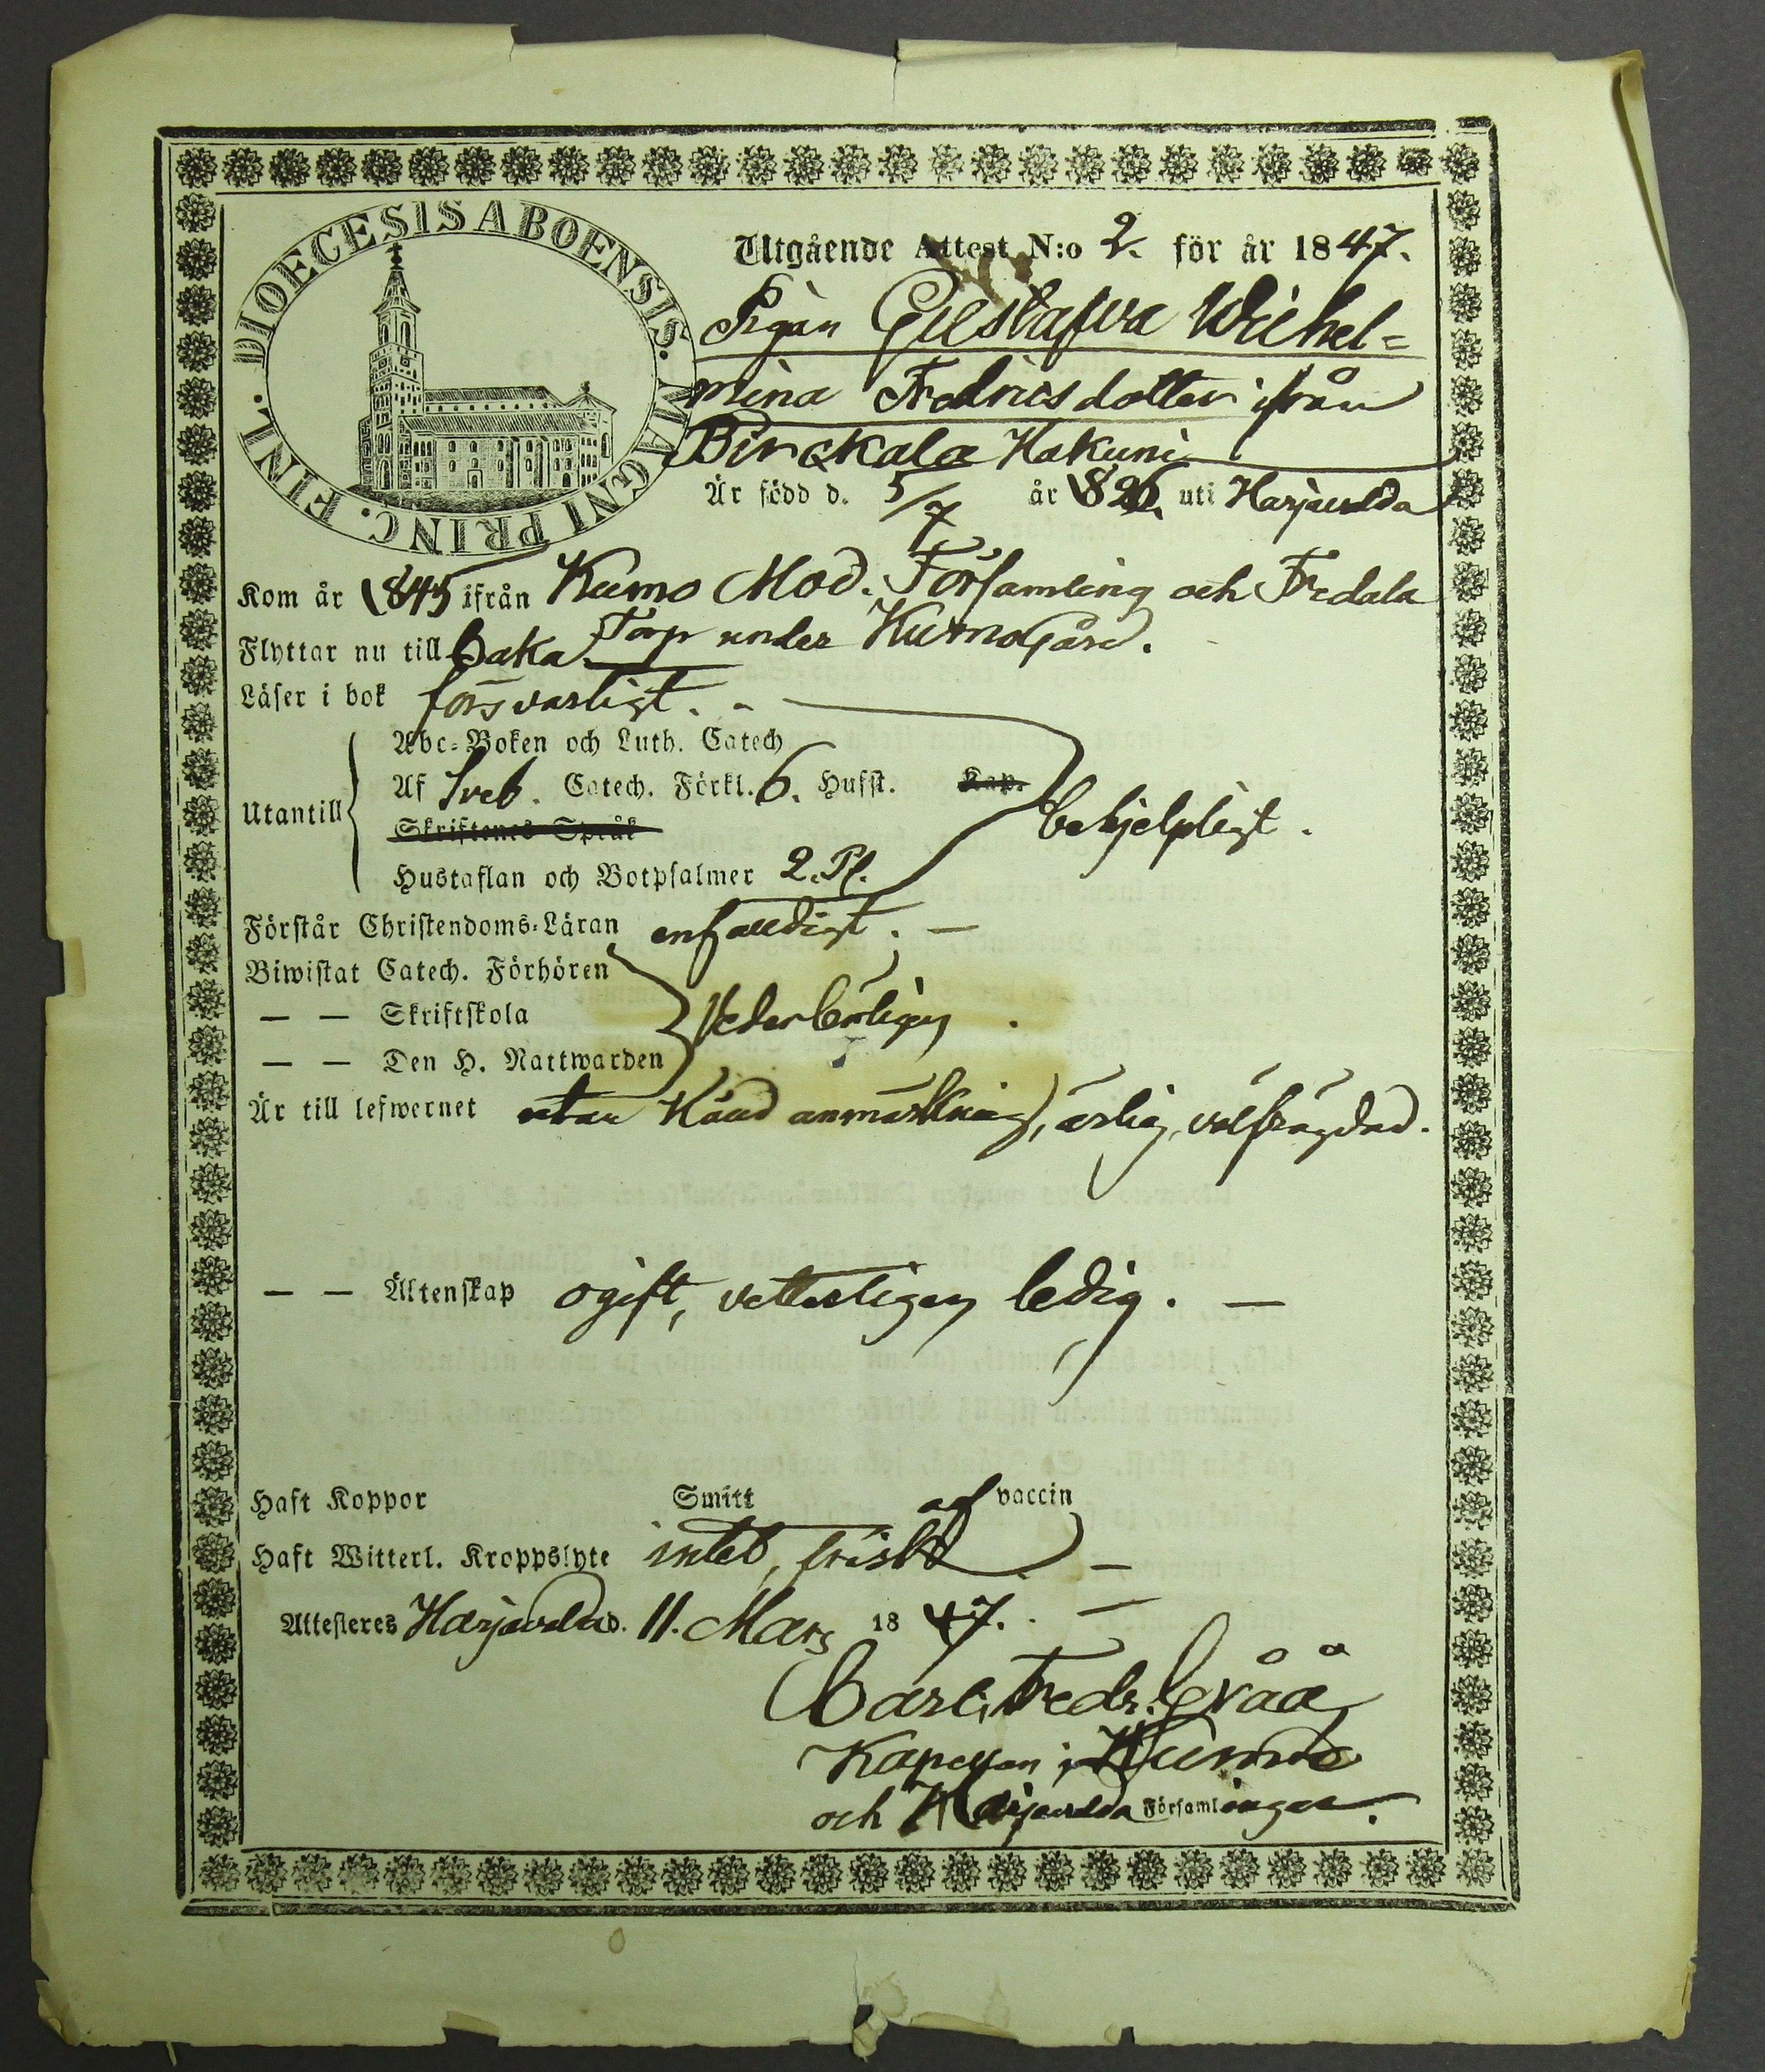 DIOECESIS ABOENSIS. MAGNI PRINC. FINL.
Utgående Attest N:o 2. för år 1847.
Pigan Gustafva Wilhel=
mina Fredricsdotter ifrån
Birckala Hakuni
Är född d. 5/7 år 1826. uti Harjavalda
Kom år 1845 ifrån Kumo Mod. Församling och Fredala
Flyttar nu till baka Torp under Kumogård.
Läser i bok försvarligt.
Abc-Boken och Luth. Catech
Utantill Af Sveb. Catech. Förkl. 6. Hufst. Kap. behjelpligt.
Skriftenes Språk
Hustaflan och Botpsalmer 2. Ps.
Förstår Christendoms-Läran enfaldigt. —
Biwistat Catech. Förhören
— — Skriftskola vederbörligen.
— — Den H. Nattwarden
Är till lefwernet utan känd anmärkning, ärlig, välfrägdad.
— — Äktenskap ogift, vetterligen ledig. —
Haft Koppor Smitt af vaccin
Haft Witterl. Kroppslyte intet, frisk —
Attesteres Harjavalda d. 11. Mars 1847. —
Carl Fredr. Gråå
Kapellan i Kumo
och Harjavalda Församlingar.